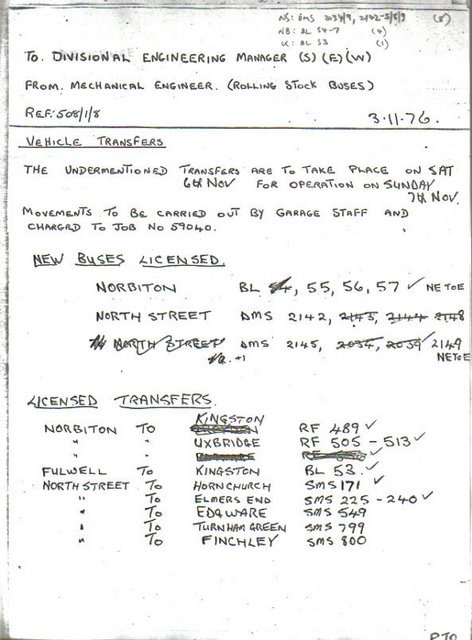 NS: DMS 2034/9, 2142-5/8/9 (8)
NB: BL 54-7 (4)
K: BL 53 (1)
TO. DIVISIONAL ENGINEERING MANAGER (S) (E) (W)
FROM. MECHANICAL ENGINEER. (ROLLING STOCK BUSES)
REF: 508/1/8
3.11.76.
VEHICLE TRANSFERS
THE UNDERMENTIONED TRANSFERS ARE TO TAKE PLACE ON SAT
6th NOV FOR OPERATION ON SUNDAY
7th NOV.
MOVEMENTS TO BE CARRIED OUT BY GARAGE STAFF AND
CHARGED TO JOB NO 59040.
NEW BUSES LICENSED.
NORBITON BL 54, 55, 56, 57 ✓ NE TOE
NORTH STREET DMS 2142, 2143, 2144 2148
NORTH STREET DMS 2145, 2034, 2039 2149
NE TOE
LICENSED TRANSFERS.
KINGSTON
NORBITON TO RF 489 ✓
" " UXBRIDGE RF 505 - 513 ✓
FULWELL TO KINGSTON BL 53. ✓
NORTH STREET TO HORNCHURCH SMS 171 ✓
" TO ELMERS END SMS 225 - 240 ✓
" TO EDGWARE SMS 549
" TO TURNHAM GREEN SMS 799
" TO FINCHLEY SMS 800
PTO